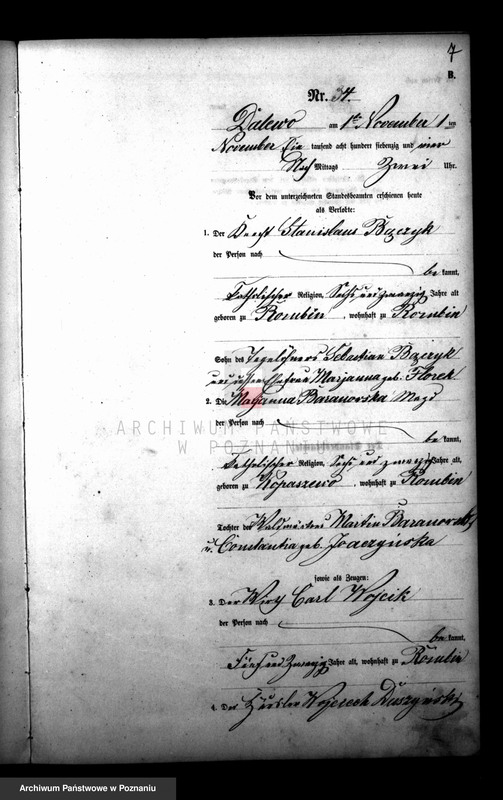 7
B.
Nr. 34.
Dalewo am 1ten November 1ten
November Ein tausend acht hundert siebenzig und vier
Nach Mittags Zwei Uhr.
Vor dem unterzeichneten Standesbeamten erschienen heute
als Verlobte:
1. Der Knecht Stanislaus Bączyk
der Person nach
bekannt,
Katholischer Religion, Sechs und zwanzig Jahre alt
geboren zu Rombin, wohnhaft zu Rombin
Sohn des Tagelöhners Sebastian Bączyk
und dessen Ehefrau Marjanna geb. Florek
2. Die Marjanna Baranowska Magd
der Person nach
bekannt,
Katholischer Religion, Sechs und zwanzig Jahre alt,
geboren zu Kopaszewo, wohnhaft zu Rombin
Tochter des Martin Baranowski
u. Constantia geb.
sowie als Zeugen:
3. Der Wirth Carl Wojcik
der Person nach
bekannt,
Fünf und Zwanzig Jahre alt, wohnhaft zu Rombin
4. Der Häusler Wojciech Duszyński
ARCHIWUM PAŃSTWOWE
W POZNANIU
Archiwum Państwowe w Poznaniu